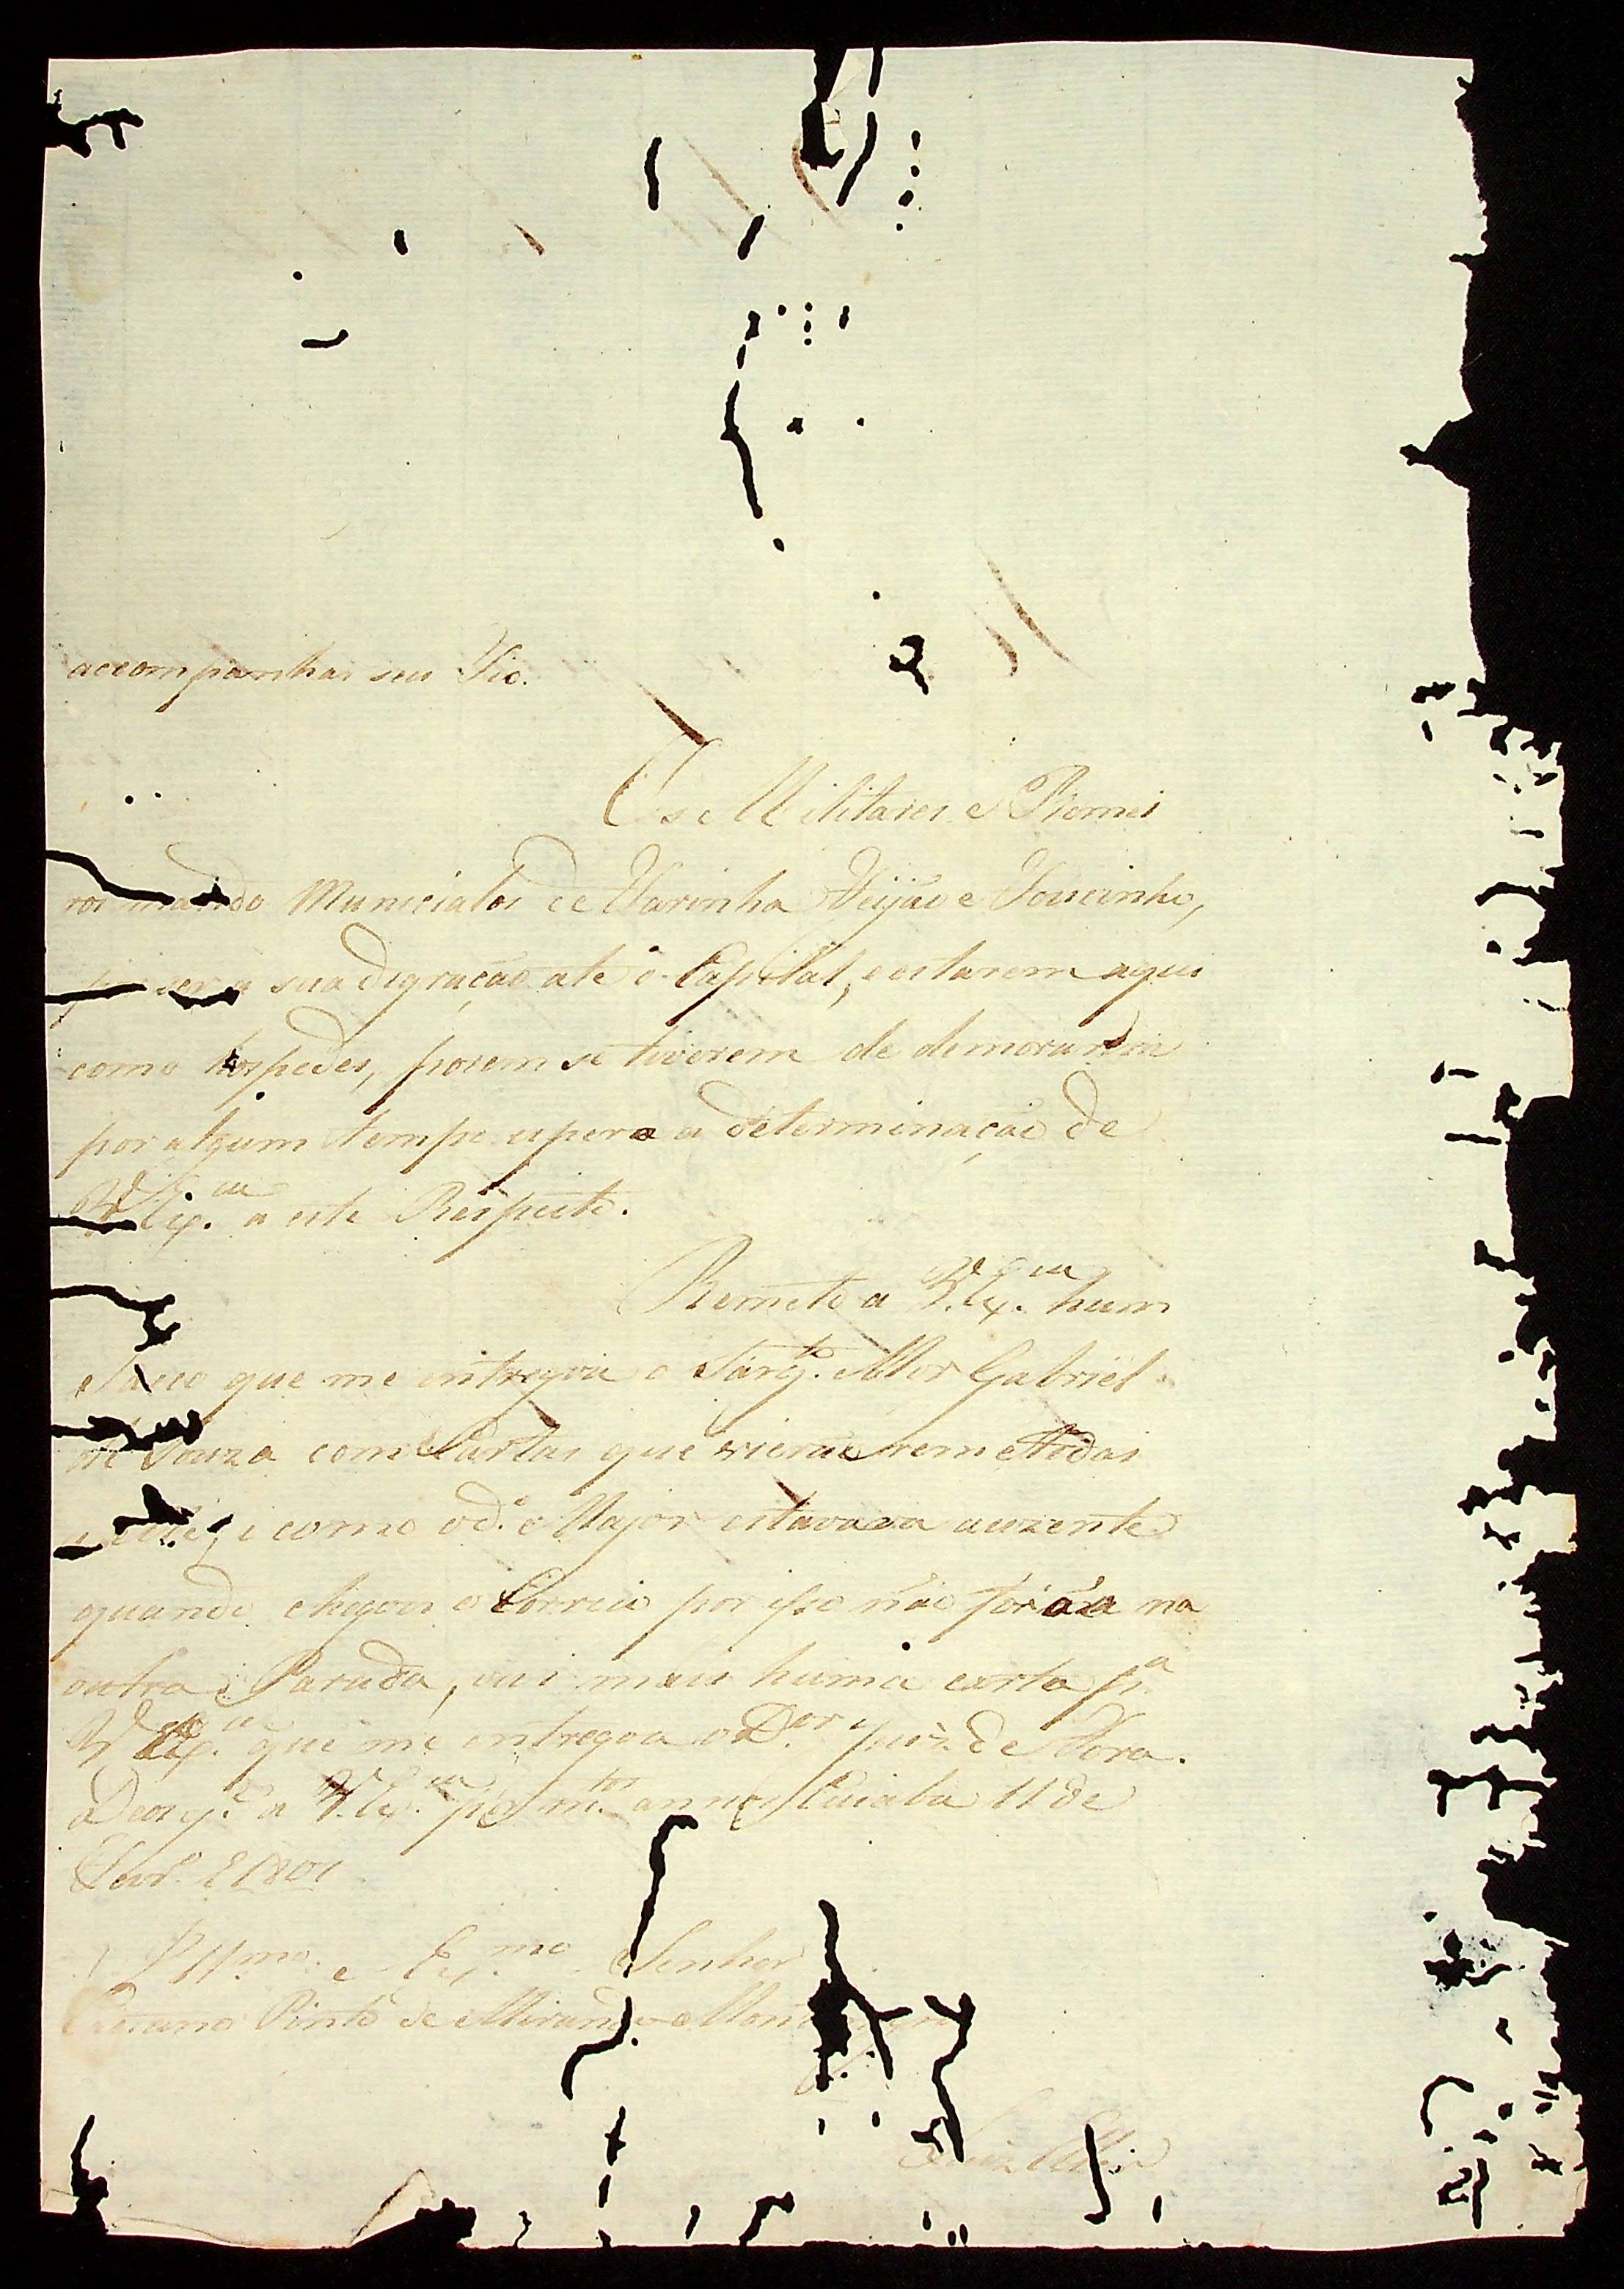 accompanhar seu Tio.
Os Militares e Remei
ros mando Municiados de Farinha Feijão e Toucinho,
ser a sua digração ate o Capital, e estarem aqui
como hospedes, porem se tiverem de demorarem
por algum tempo espero a determinação de
V. Ex.ᶜⁱᵃ a este Respeito.
Remeto a V. Ex.ᶜⁱᵃ hum
Saco que me entregou o Sarg.ᵗᵒ Mor Gabriel
de Souza com Cartas que vierão remetidas
e como o d.º Major estava auzente
quando chegou o Correio por isso não forão na
outra Parada, vai mais huma carta p.ᵃ
V. Ex.ᶜⁱᵃ que me entregou o D.ᵒʳ Juiz de Fora.
Deos g.ᵉ a V. Ex.ᶜⁱᵃ por m.ᵗᵒˢ annos Cuiaba 11 de
1801
Ill.ᵐᵒ e Ex.ᵐᵒ Senhor
Caetano Pinto de Miranda Mon